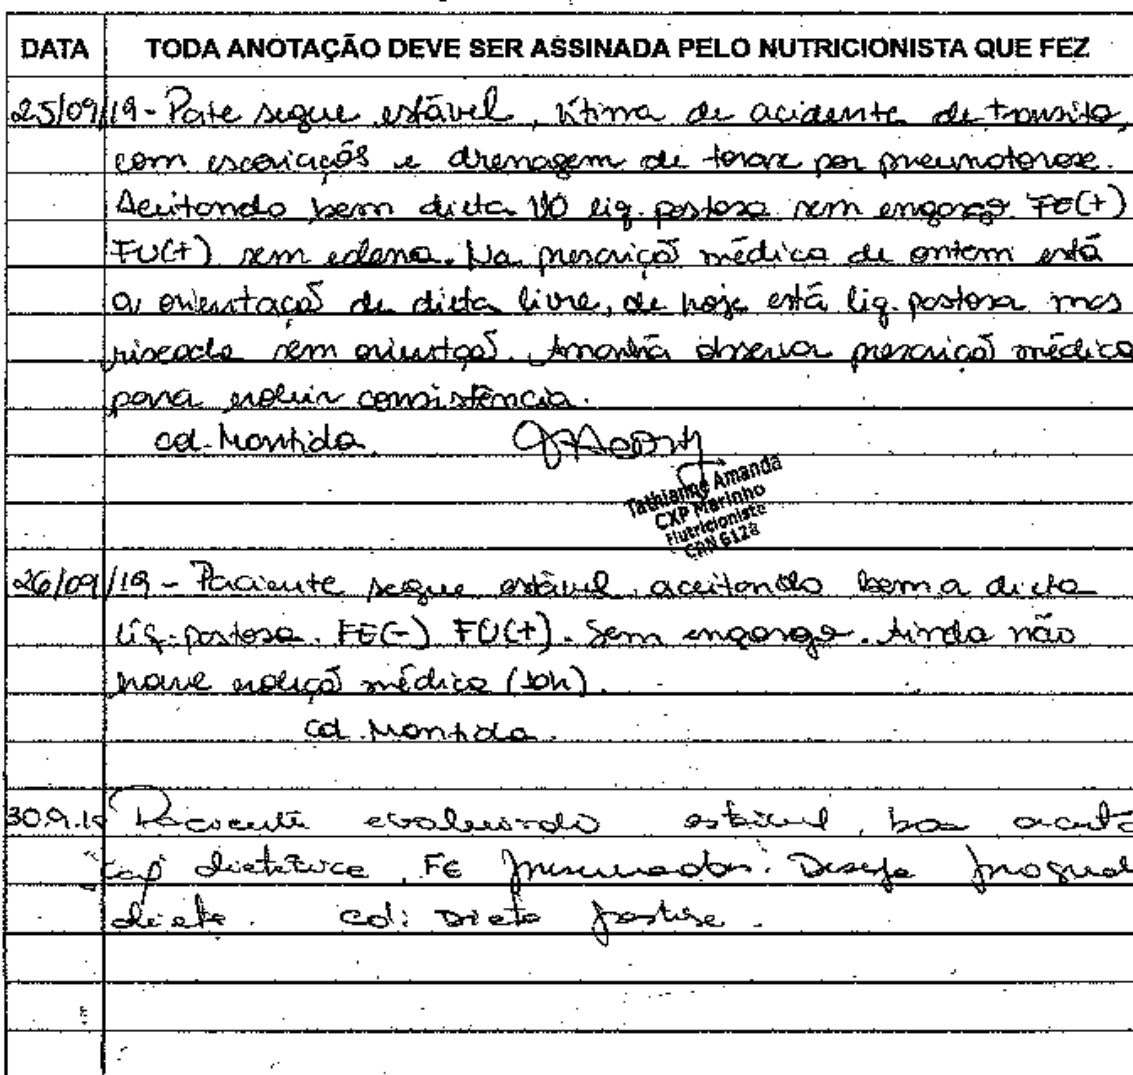 DATA TODA ANOTAÇÃO DEVE SER ASSINADA PELO NUTRICIONISTA QUE FEZ
25/09/19 - Pcte segue estável, vítima de acidente de transito,
com escoriações e drenagem de torax por pneumotorax.
Aceitando bem dieta VO liq. pastosa sem engasgo FE(+)
FU(+) sem edema. Na prescrição médica de ontem está
a orientação de dieta livre, de hoje está liq. pastosa mas
riscada sem orientação. Amanhã observar prescrição médica
para evoluir consistência.
cd. Mantida.
Tathianne Amanda
CXP Marinho
Nutricionista
CRN 6128
26/09/19 - Paciente segue estável, aceitando bem a dieta
líq. pastosa. FE(-) FU(+). Sem engasgo. Ainda não
houve evolução médica (10h).
cd. Mantida.
30.9.19 Paciente evoluindo estável, boa aceita
ção dietética, FE Deseja
dieta. cd: Dieta pastosa.